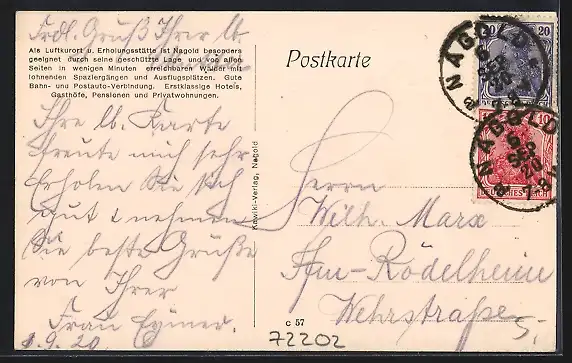 Frdl. Gruß Ihrer lb.
Als Luftkurort u. Erholungsstätte ist Nagold besonders
geeignet durch seine geschützte Lage und von allen
Seiten in wenigen Minuten erreichbaren Wälder mit
lohnenden Spaziergängen und Ausflugsplätzen. Gute
Bahn- und Postauto-Verbindung. Erstklassige Hotels,
Gasthöfe, Pensionen und Privatwohnungen.
Ihre lb. Karte
freute mich sehr
Erholen Sie sich
gut & nehmen
Sie beste Grüße
von Ihrer
Frau
1.9.20.
Postkarte
Verlag, Nagold
NAGOLD
6 SEP 20
20
20
DEUTSCHES REICH
NAGOLD
6 SEP 20
10
DEUTSCHES REICH
Herrn
Wilh. Marx
Ffm-Rödelheim
Wehrstraße 5.
C 57
72202